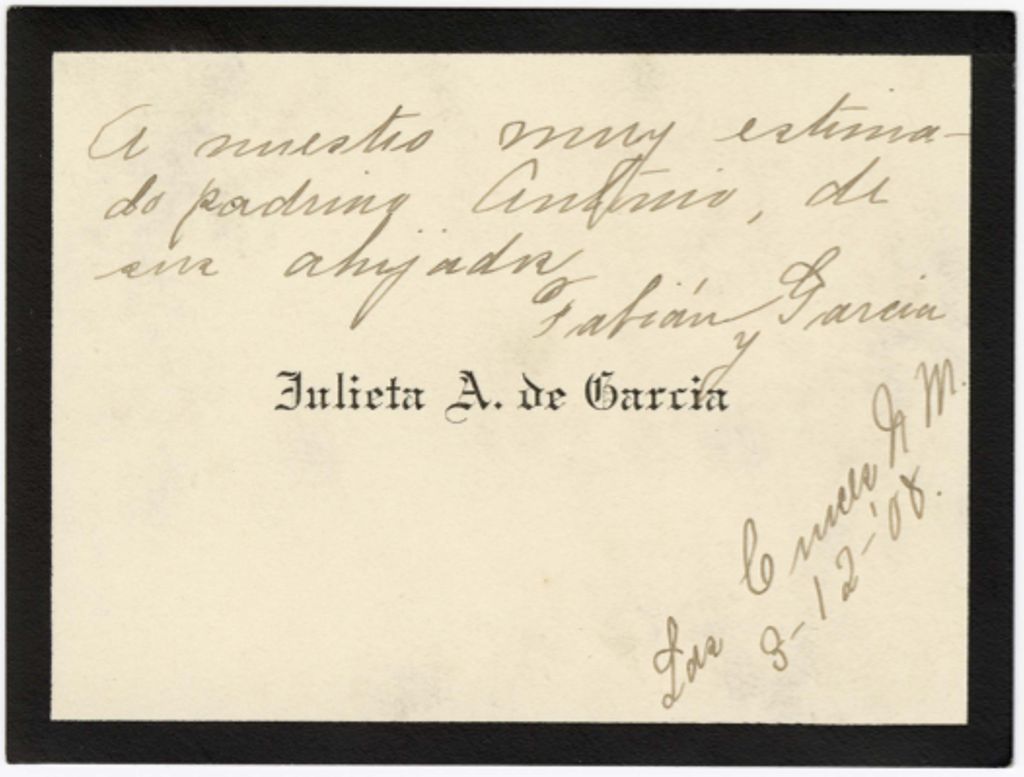 A nuestro muy estima-
do padrino Antonio, de
sus ahijados
Fabián Garcia
y
Julieta A. de Garcia
Las Cruces N M.
3-12-'08.